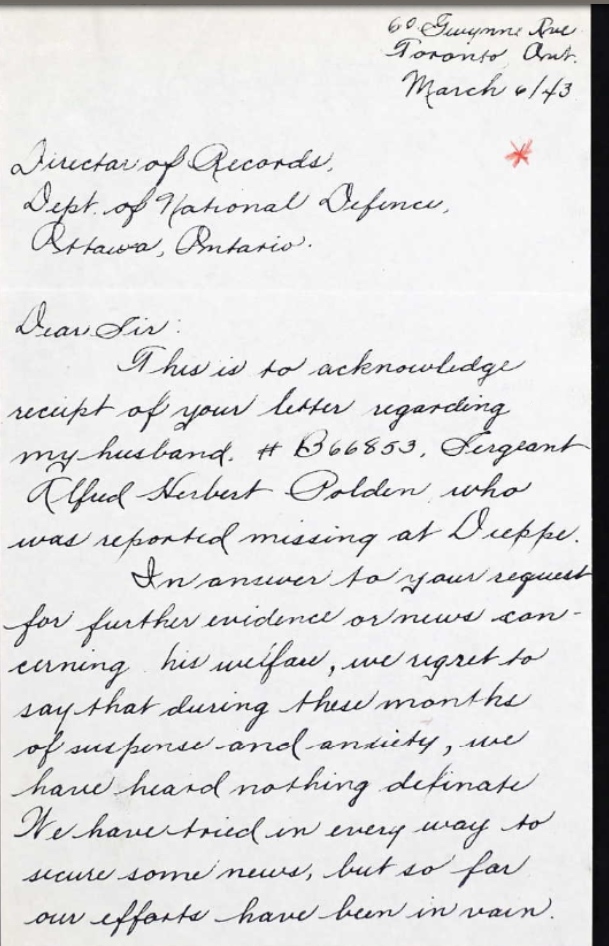 60 Gwynne Ave
Toronto Ont.
March 6/43
Director of Records,
Dept. of National Defence,
Ottawa, Ontario.
Dear Sir:
This is to acknowledge
receipt of your letter regarding
my husband. # B66853, Sergeant
Alfred Herbert Polden who
was reported missing at Dieppe.
In answer to your request
for further evidence or news con-
cerning his welfare, we regret to
say that during these months
of suspense and anxiety, we
have heard nothing definate
We have tried in every way to
secure some news, but so far
our efforts have been in vain.